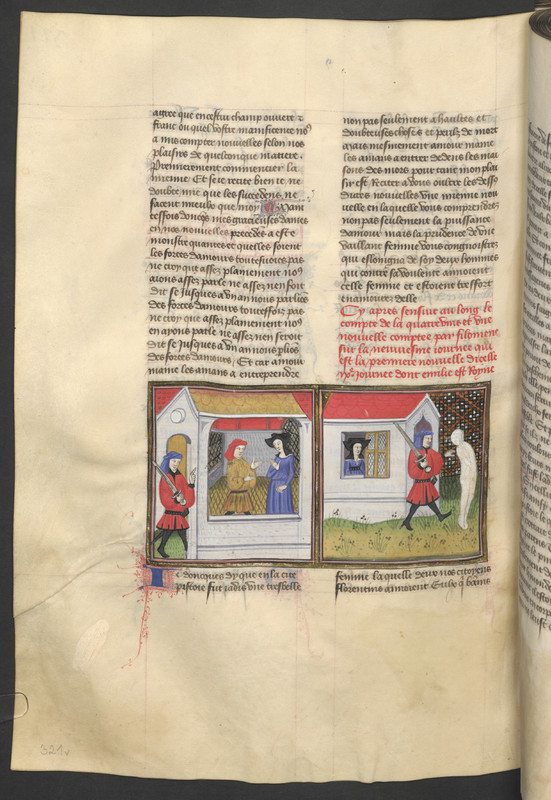 agree que en cestui champ ouvert z
franc ou quel vostre magnificence no9
a mis compter nouvelles selon nos
plaisirs de quelconque matiere.
Premierement commencier la
mienne Et se ie recite bien ie ne
doubte mie que les succedens ne
facent mieulx que moy Auant
tressous doncqs mes gracieuses dames
en nos nouuelles precedes a este
monstre quantes et quelles soient
les forces damours toutesuoies pas
ne croy que assez plainement no9
aions assez parle ne assez nen soit
dit se jusques a vn an nous parlios
des forces damours toutesfoiz pas
ne croy que assez plainement no9
en ayons parle ne assez nen seroit
dit se jusques a vn an nous plios
des forces damours, Et car amour
maine les amans a entreprendre
non pas seulement a haultes et
doubteuses choses et perilz de mort
mais mesmement amour maine
les amans a entrer dedens les mai
sons des mors pour tant mon plai
sir est Reciter a vous oultre les dess9
dictes nouuelles vne mienne nou
uelle en laquelle vous comprendrez
non pas seulement la puissance
damour mais la prudence dune
vaillant femme vous congnoistrez
qui eslongna de soy deux hommes
qui contre sa voulente amoient
celle femme et estoient tressort
enamourez delle
Cy apres sensuit au long le
compte de la quatrevins et vne
nouuelle comptee par filomene
sur la neuuiesme iournee qui
est la premiere nouuelle dicelle
ixe journee dont emilie est Royne
Ie doncques dy que en la cite
pistoie fut iadis vne tresbelle
femme la quelle deux nos citoyens
florentins amoient
321v